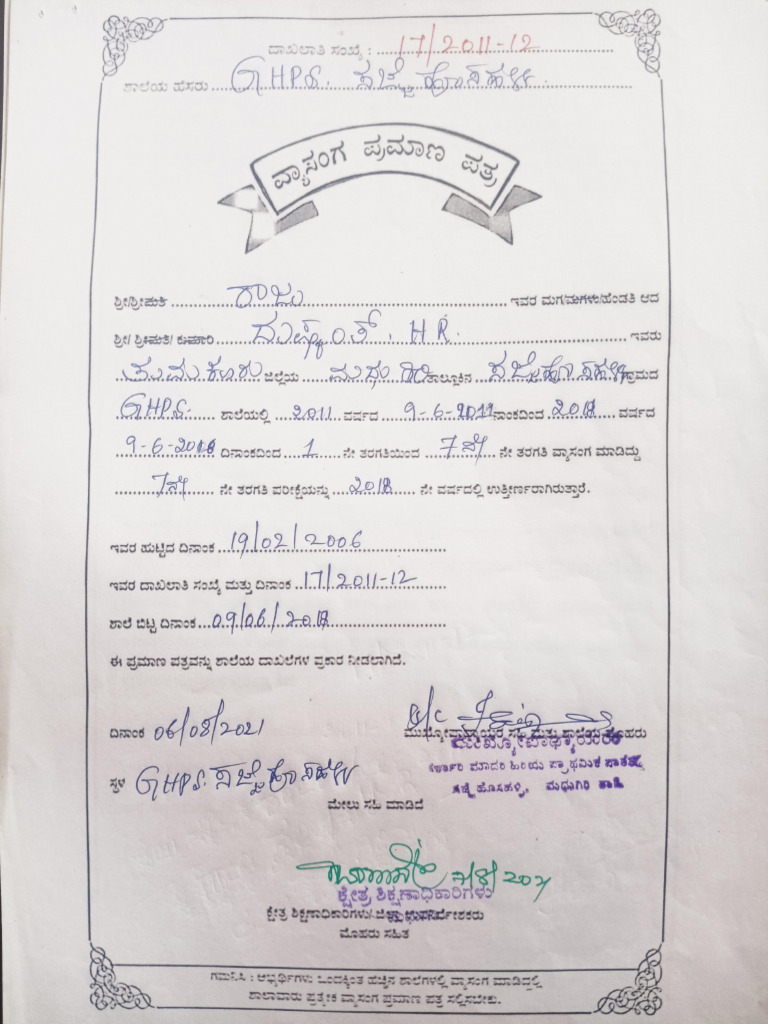 ದಾಖಲಾತಿ ಸಂಖ್ಯೆ : 17/2011-12
ಶಾಲೆಯ ಹೆಸರು GHPS. ಸಜ್ಜೆ ಹೊಸಹಳ್ಳಿ
ವ್ಯಾಸಂಗ ಪ್ರಮಾಣ ಪತ್ರ
ಶ್ರೀ/ಶ್ರೀಮತಿ ರಾಜು ಇವರ ಮಗ/ಮಗಳು/ಹೆಂಡತಿ ಆದ
ಶ್ರೀ/ ಶ್ರೀಮತಿ/ ಕುಮಾರಿ ದುಷ್ಯಂತ್. H R. ಇವರು
ತುಮಕೂರು ಜಿಲ್ಲೆಯ ಮಧುಗಿರಿ ತಾಲ್ಲೂಕಿನ ಸಜ್ಜೆಹೊಸಹಳ್ಳಿ ಗ್ರಾಮದ
GHPS. ಶಾಲೆಯಲ್ಲಿ 2011 ವರ್ಷದ 9-6-2011 ನಾಂಕದಿಂದ 2018 ವರ್ಷದ
9-6-2018 ದಿನಾಂಕದಿಂದ 1 ನೇ ತರಗತಿಯಿಂದ 7ನೇ ನೇ ತರಗತಿ ವ್ಯಾಸಂಗ ಮಾಡಿದ್ದು
7ನೇ ನೇ ತರಗತಿ ಪರೀಕ್ಷೆಯನ್ನು 2018 ನೇ ವರ್ಷದಲ್ಲಿ ಉತ್ತೀರ್ಣರಾಗಿರುತ್ತಾರೆ.
ಇವರ ಹುಟ್ಟಿದ ದಿನಾಂಕ 19/02/2006
ಇವರ ದಾಖಲಾತಿ ಸಂಖ್ಯೆ ಮತ್ತು ದಿನಾಂಕ 17/2011-12
ಶಾಲೆ ಬಿಟ್ಟ ದಿನಾಂಕ 09/06/2018
ಈ ಪ್ರಮಾಣ ಪತ್ರವನ್ನು ಶಾಲೆಯ ದಾಖಲೆಗಳ ಪ್ರಕಾರ ನೀಡಲಾಗಿದೆ.
ದಿನಾಂಕ 06/08/2021
ಮುಖ್ಯೋಪಾಧ್ಯಾಯರ ಸಹಿ ಮತ್ತು ಶಾಲೆಯ ಮೊಹರು
ಮುಖ್ಯೋಪಾಧ್ಯಾಯರು
ಸರ್ಕಾರಿ ಮಾದರಿ ಹಿರಿಯ ಪ್ರಾಥಮಿಕ ಪಾಠಶಾಲೆ
ಸಜ್ಜೆ ಹೊಸಹಳ್ಳಿ, ಮಧುಗಿರಿ ತಾ||
ಸ್ಥಳ GHPS. ಸಜ್ಜೆ ಹೊಸಹಳ್ಳಿ
ಮೇಲು ಸಹಿ ಮಾಡಿದೆ
7/8/2021
ಕ್ಷೇತ್ರ ಶಿಕ್ಷಣಾಧಿಕಾರಿಗಳು
ಕ್ಷೇತ್ರ ಶಿಕ್ಷಣಾಧಿಕಾರಿಗಳು/ ಜಿಲ್ಲಾ ಉಪನಿರ್ದೇಶಕರು
ಮೊಹರು ಸಹಿತ
ಗಮನಿಸಿ : ಅಭ್ಯರ್ಥಿಗಳು ಒಂದಕ್ಕಿಂತ ಹೆಚ್ಚಿನ ಶಾಲೆಗಳಲ್ಲಿ ವ್ಯಾಸಂಗ ಮಾಡಿದ್ದಲ್ಲಿ
ಶಾಲಾವಾರು ಪ್ರತ್ಯೇಕ ವ್ಯಾಸಂಗ ಪ್ರಮಾಣ ಪತ್ರ ಸಲ್ಲಿಸಬೇಕು.